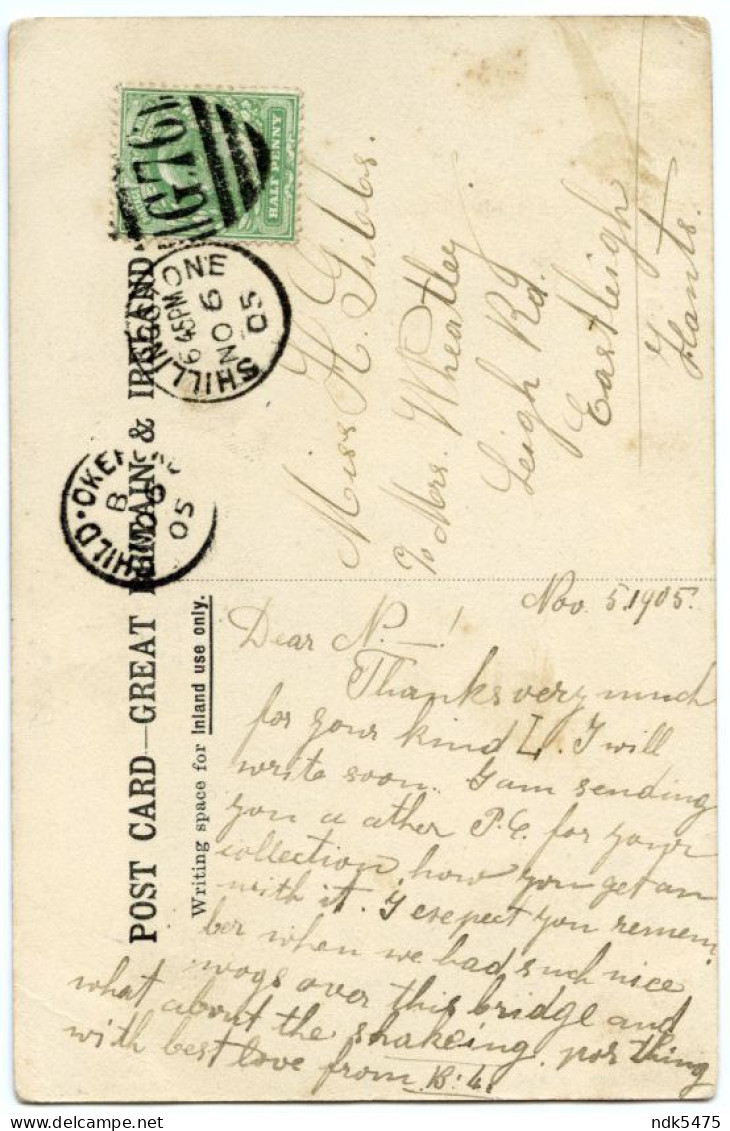 POST CARD—GREAT BRITAIN & IRELAND.
Writing space for Inland use only.
HALF PENNY
G76
SHILLINGSTONE
6 45PM
NO 6
05
CHILD OKEFORD
B
NO 6
05
Miss H. Gibbs.
c/o Mrs. Wheatley
Leigh Rd.
Eastleigh
Hants.
Nov. 5. 1905.
Dear N. —!
Thanks very much
for your kind L. I will
write soon. I am sending
you a other P.C. for your
collection, how you get on
with it. I crepect you remem
ber when we had such nice
wogs over this bridge and
what about the shakeing. por thing
with best love from B.
ndk5475